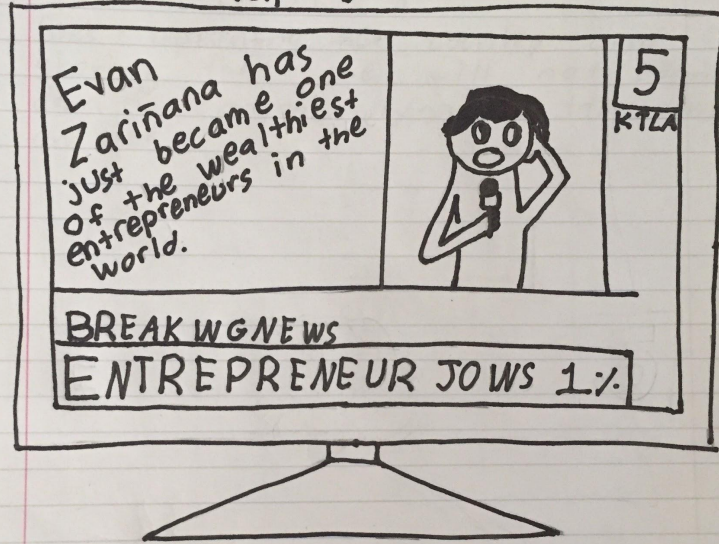 Evan
Zariñana has
just became one
of the wealthiest
entrepreneurs in the
world.
5
KTLA
BREAKWGNEWS
ENTREPRENEUR JOWS 1%